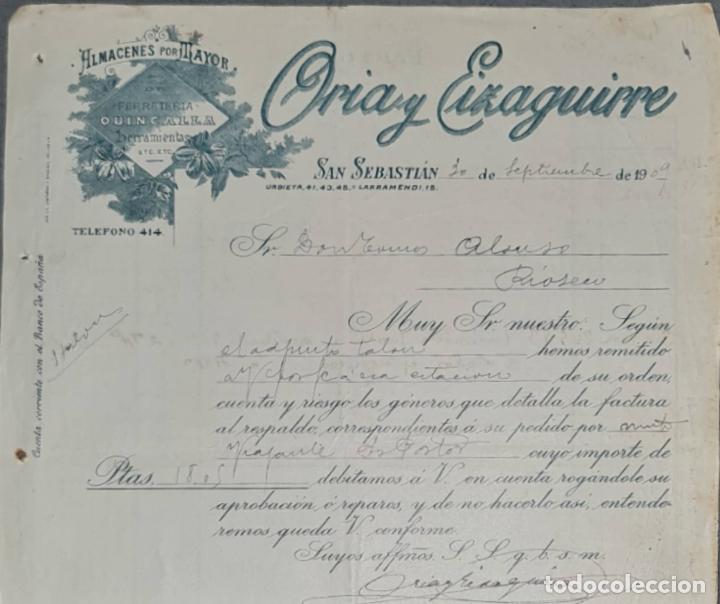 ALMACENES POR MAYOR
DE
FERRETERIA
QUINCALLA
herramientas
ETC. ETC.
TELEFONO 414.
Oria y Eizaguirre
SAN SEBASTIÁN 30 de Septiembre de 1909
URBIETA, 41, 43, 45, Y LARRAMENDI, 15.
Sr. Don Tomas Alonso
Rioseco
Muy Sr. nuestro: Según
el adjunto talon hemos remitido
a V. por esta estacion de su orden,
cuenta y riesgo los géneros que detalla la factura
al respaldo, correspondientes á su pedido por
viajante cuyo importe de
Ptas. 18.05 debitamos á V. en cuenta rogándole su
aprobación ó reparos, y de no hacerlo asi, entende-
remos queda V. conforme.
Suyos affmos. S. S. q. b. s. m.
Oria y Eizaguirre
Cuenta corriente con el Banco de España
1 talon
todocoleccion.net